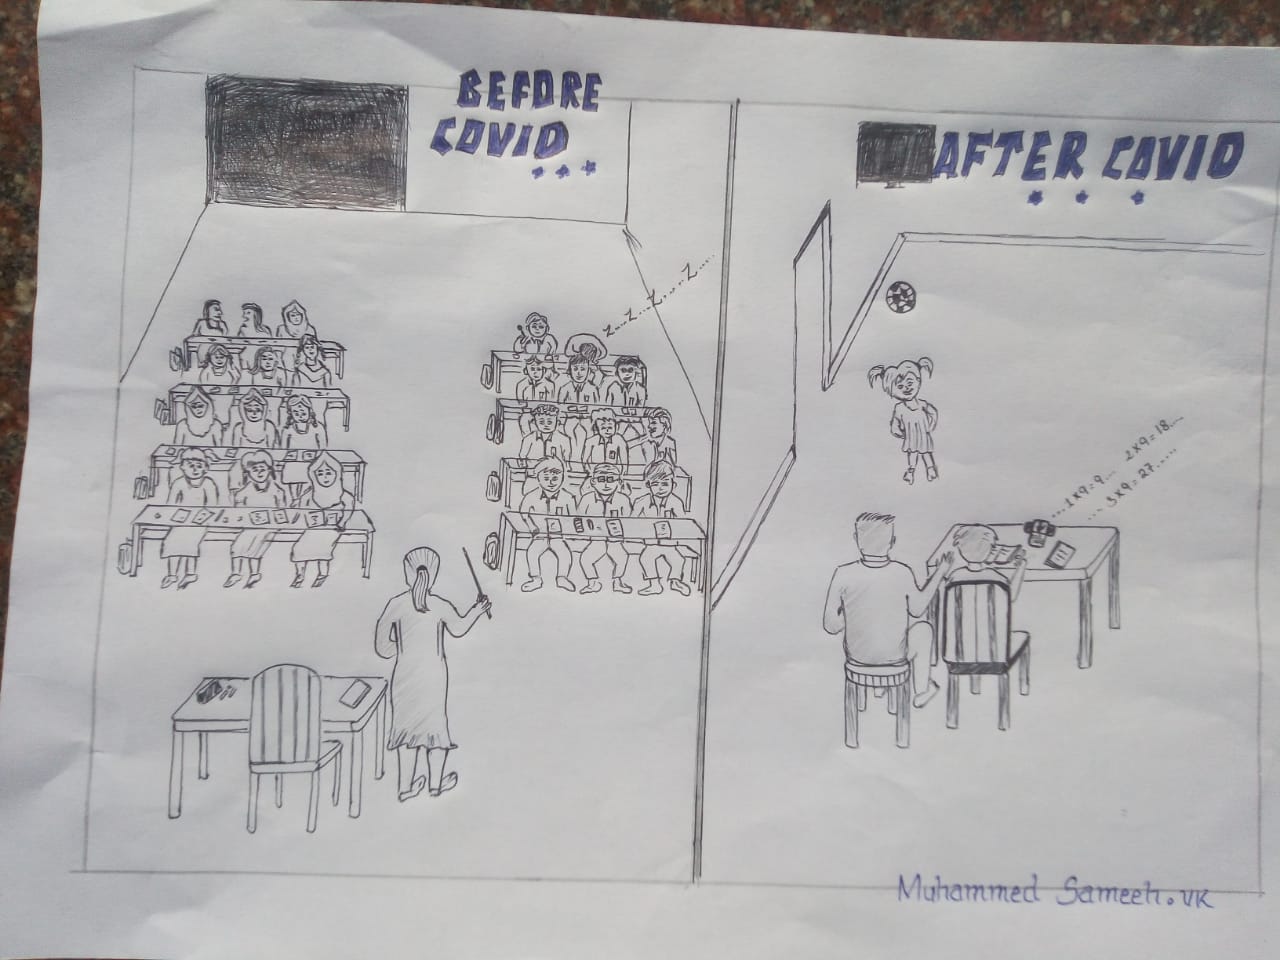 BEFORE
COVID
...
Z...Z...Z.....Z.....
AFTER COVID
...
...1x9=9... 2x9=18...
...3x9=27.....
Muhammed Sameeh.VK